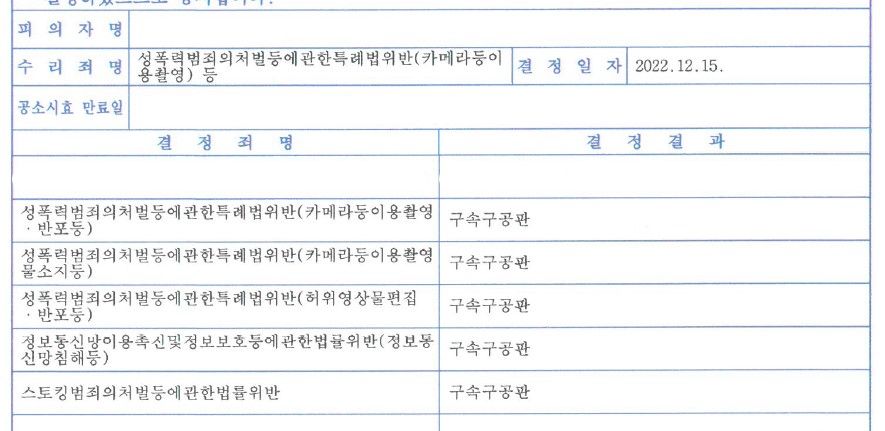 피 의 자 명
수 리 죄 명
성폭력범죄의처벌등에관한특례법위반(카메라등이
용촬영) 등
결 정 일 자
2022.12.15.
공소시효 만료일
결 정 죄 명
결 정 결 과
성폭력범죄의처벌등에관한특례법위반(카메라등이용촬영
·반포등)
구속구공판
성폭력범죄의처벌등에관한특례법위반(카메라등이용촬영
물소지등)
구속구공판
성폭력범죄의처벌등에관한특례법위반(허위영상물편집
·반포등)
구속구공판
정보통신망이용촉신및정보보호등에관한법률위반(정보통
신망침해등)
구속구공판
스토킹범죄의처벌등에관한법률위반
구속구공판